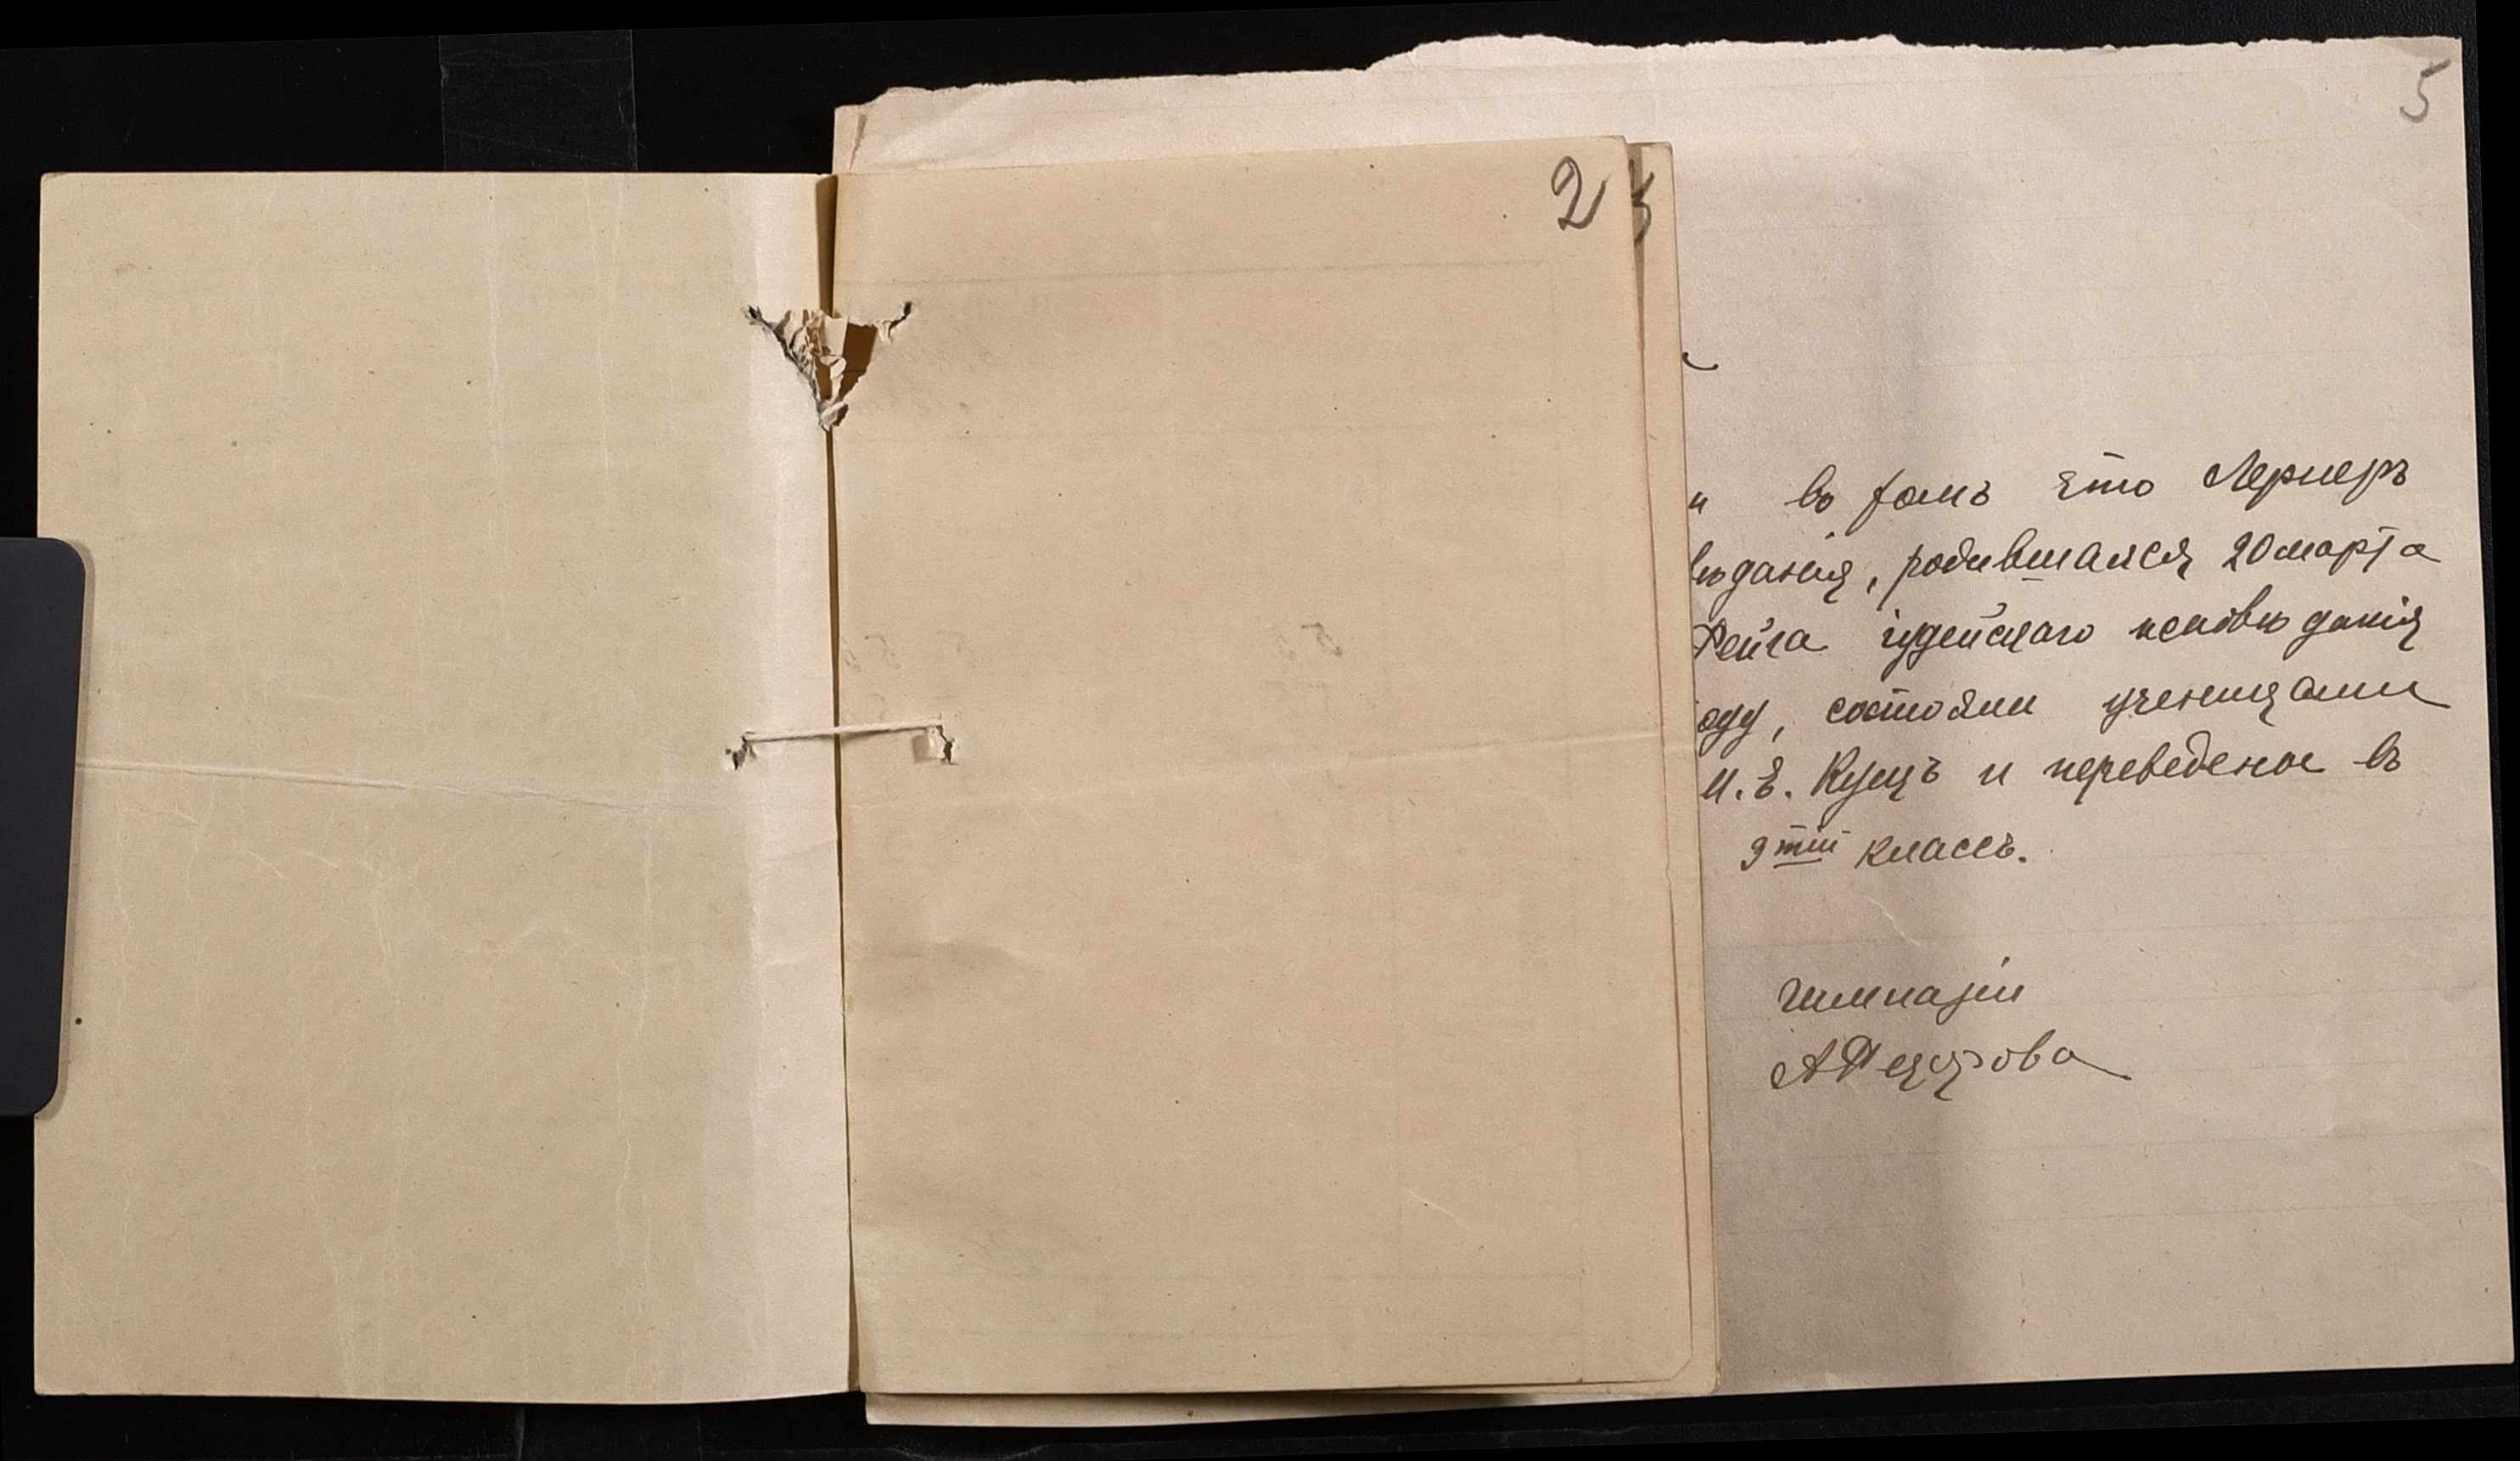 5
2
и въ томъ что Лернеръ
вѣданія, родившаяся 20 марта
Фейга іудейскаго исповѣданія
оду, состояли ученицами
И. Е. Куцъ и переведены въ
этій классъ.
гимназіи